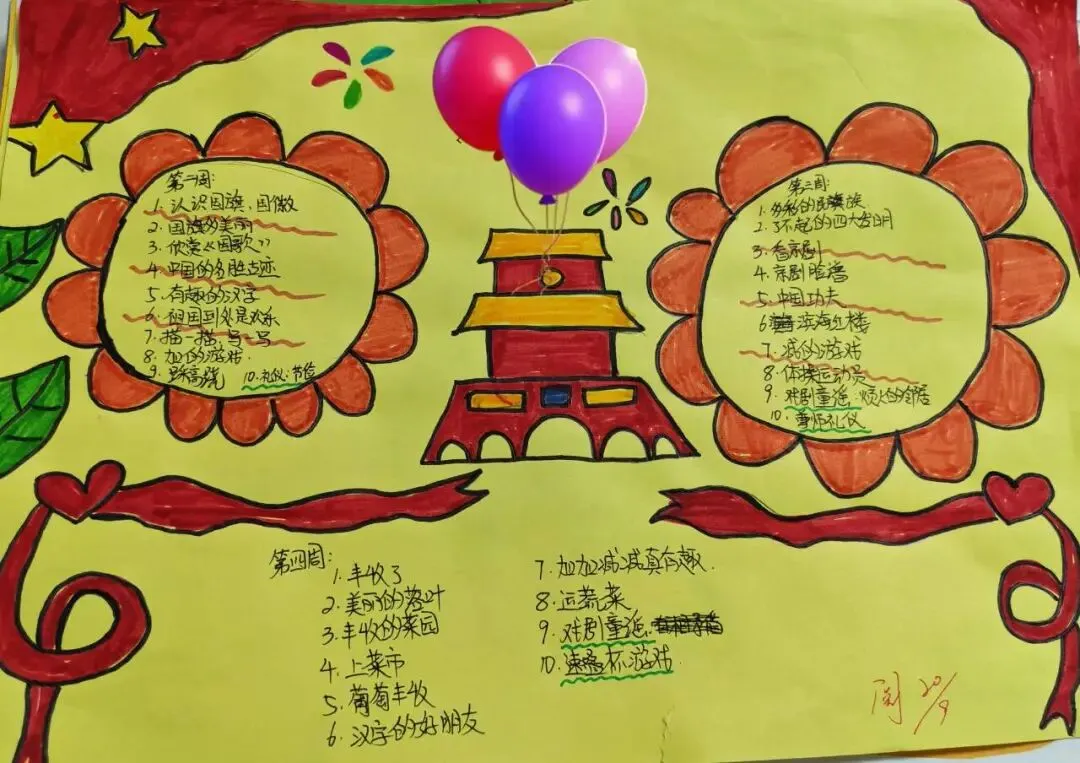 第一周:
1. 认识国旗、国徽
2. 国旗的美丽
3. 欣赏《国歌》
4. 中国的名胜古迹
5. 有趣的汉字
6. 祖国到处是欢乐
7. 描一描,写一写
8. 加的游戏
9. 踩高跷 10. 礼仪:节俭
第二周:
1. 多彩的民族
2. 了不起的四大发明
3. 看京剧
4. 京剧脸谱
5. 中国功夫
6. 滨海红楼
7. 减的游戏
8. 体操运动员
9. 戏剧童谣:烦人的邻居
10. 尊师礼仪
第四周:
1. 丰收了
2. 美丽的落叶
3. 丰收的菜园
4. 上菜市
5. 葡萄丰收
6. 汉字的好朋友
7. 加加减减真有趣
8. 运蔬菜
9. 戏剧童谣:
10. 速叠杯游戏
周 20/9